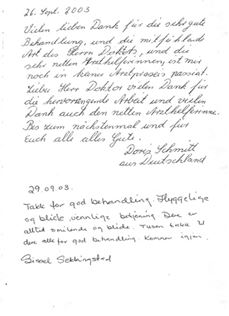 26. Sept. 2003
Vielen lieben Dank für die sehr gute
Behandlung, und die mitfühlende
Art des Herrn Doktors, und die
sehr netten Arzthelferinnen, ist mir
noch in keiner Arztpraxis passiert.
Lieber Herr Doktor vielen Dank für
die hervorragende Arbeit und vielen
Dank auch den netten Arzthelferinnen.
Bis zum nächstenmal und für
Euch alle alles Gute.
Doris Schmitt
aus Deutschland
29.09.03.
Takk for god behandling. Hyggelige
og blide, vennlige betjening. Dere er
alltid smilende og blide. Tusen takk til
dere alle for god behandling. Kommer igjen.
Sissel